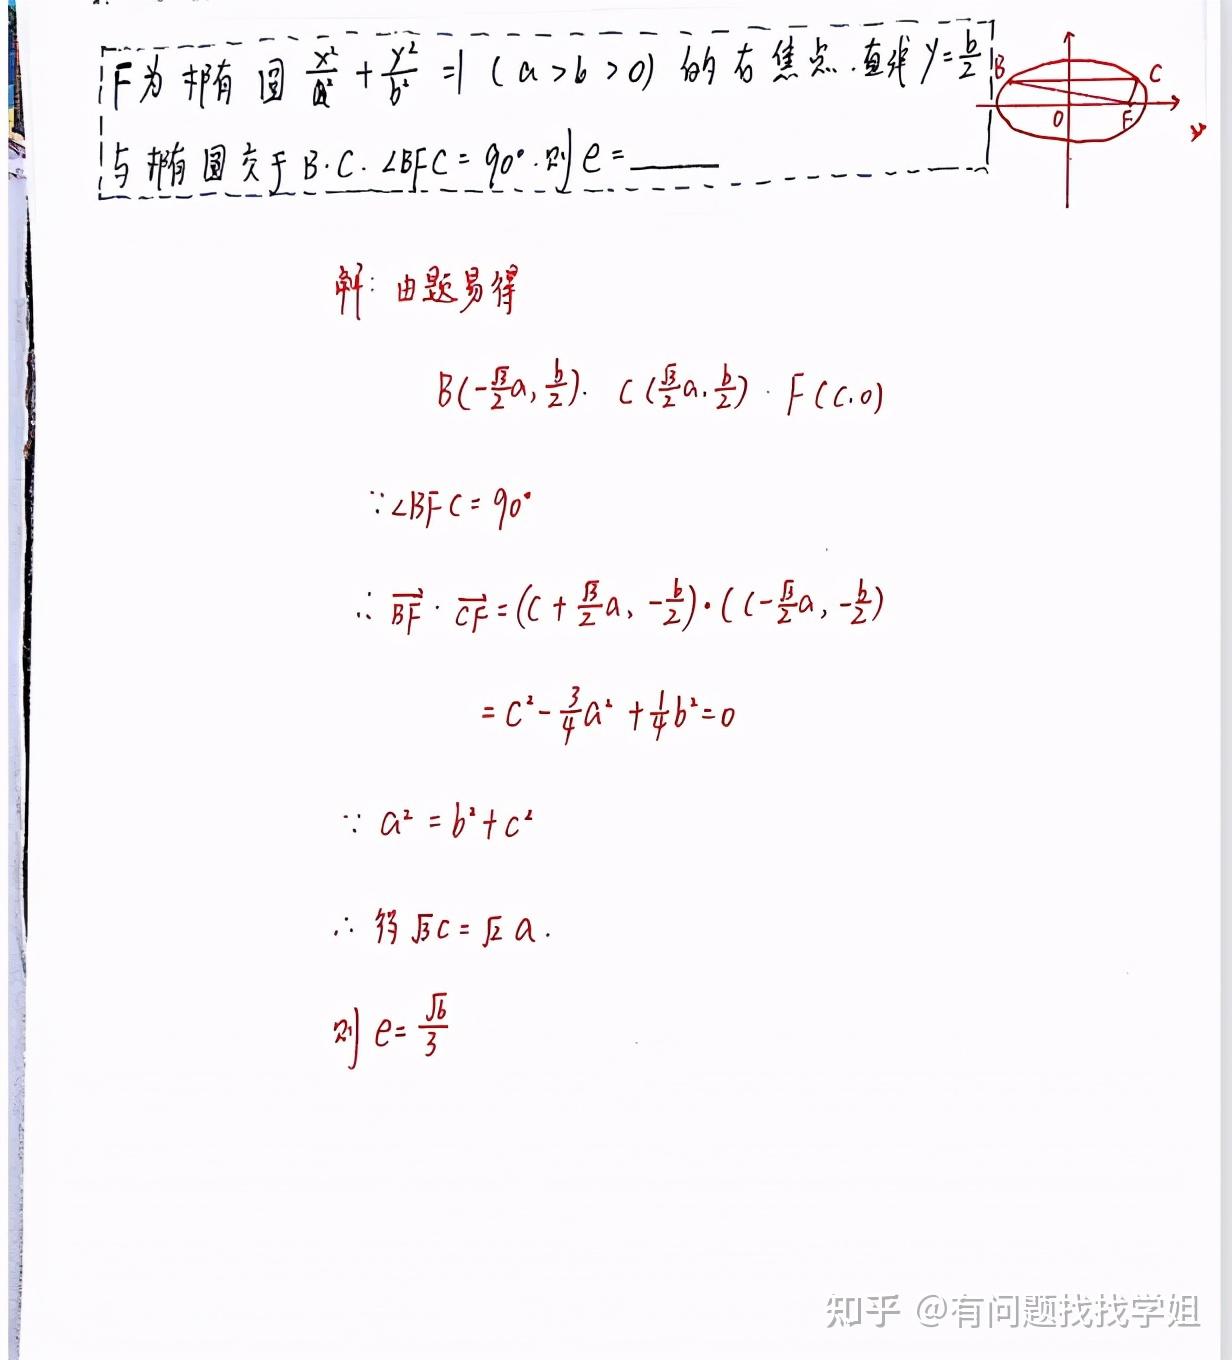 F为椭圆 x²/a² + y²/b² =1 (a>b>0) 的右焦点.直线 y=b/2
与椭圆交于B.C.∠BFC=90°.则e=____
B C O F
解:由题易得
B(-√3/2a, b/2). C(√3/2a, b/2). F(c,0)
∵∠BFC=90°
∴ BF→·CF→=(c+√3/2a, -b/2)·(c-√3/2a, -b/2)
=c²-3/4a²+1/4b²=0
∵ a²=b²+c²
∴ 得√3c=√2a.
则 e=√6/3
知乎 @有问题找找学姐